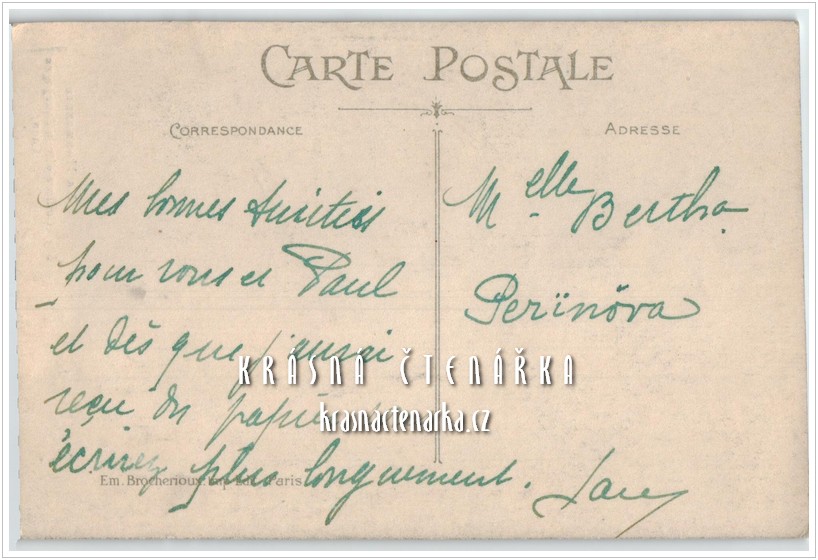 CARTE POSTALE
CORRESPONDANCE
ADRESSE
Mes bonnes Amitiés
pour vous et Paul
et dès que j'aurai
reçu du papier
écrirez plus longuement.
Melle Bertha
Perinöva
KRÁSNÁ ČTENÁŘKA
krasnactenarka.cz
Em. Brocherioux. Imp. Edit. Paris